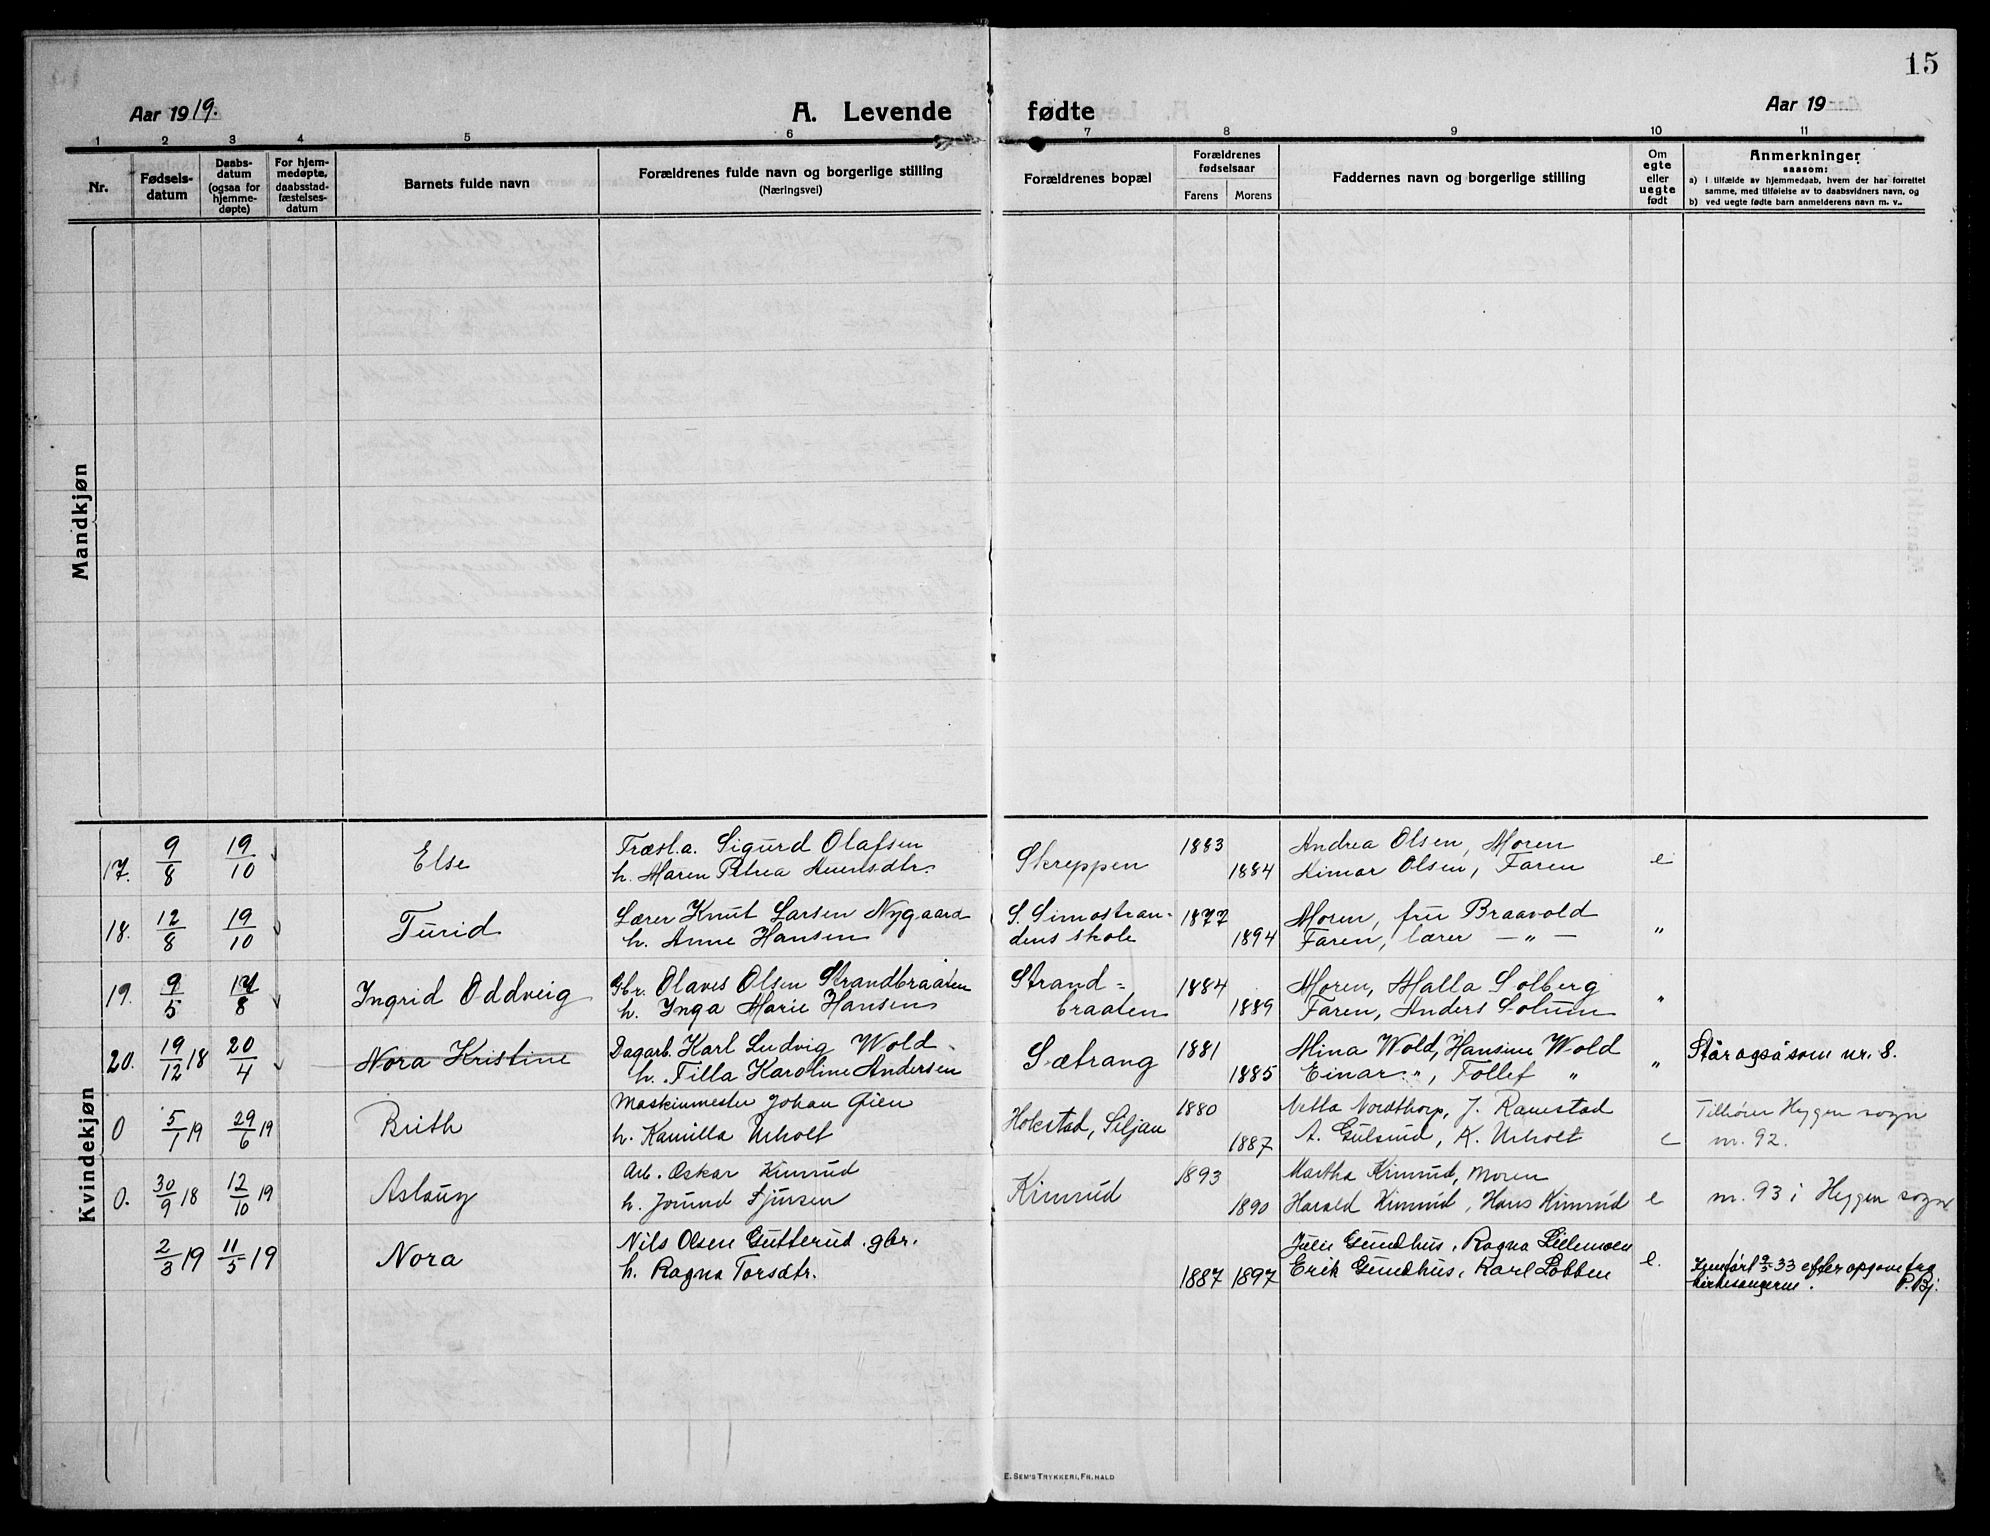 15
Aar 1919.
A. Levende fødte
Aar 19
1 2 3 4 5 6 7 8 9 10 11
Nr.
Fødsels-
datum
Daabs-
datum
(ogsaa for
hjemme-
døpte)
For hjem-
medøpte,
daabsstad-
fæstelses-
datum
Barnets fulde navn
Forældrenes fulde navn og borgerlige stilling
(Næringsvei)
Forældrenes bopæl
Forældrenes
fødselsaar
Farens Morens
Faddernes navn og borgerlige stilling
Om
egte
eller
uegte
født
Anmerkninger
saasom:
a) i tilfælde av hjemmedaab, hvem der har forrettet
samme, med tilføielse av to daabsvidners navn, og
b) ved uegte fødte barn anmelderens navn m. v..
Mandkjøn
Kvindekjøn
17. 9/8 19/10 Else Træsl.a. Sigurd Olafsen Skreppen 1883 Andrea Olsen, Moren e
h. Maren Petrea 1884 Olsen, Faren
18. 12/8 19/10 Turid Lærer Knut Larsen Nygaard S. Simostran- 1877 Moren, fru Braavold "
h. Anne Hansen dens skole 1894 Faren, lærer — " —
19. 9/5 /8 Ingrid Oddveig Gbr. Olaves Olsen Strandbraaten Strand= 1884 Moren, Malla Solberg "
h. Inga Marie Hansen braaten 1889 Faren, Anders Solum
20. 19/12 18 20/4 Nora Kristine Dagarb. Karl Ludvig Wold Sætrang 1881 Mina Wold, Hansine Wold " Står også som nr. 8.
h. Tilla Karoline Andersen 1885 Einar ", Tollef "
0 5/1 19 29/6 19 Brith Maskinmester Johan Gien Hokstad, Siljan 1880 Netta Nordthorp, J. Ramstad e Tilhører Heggen sogn
h. Kamilla Urholt 1887 A. Gulsrud, K. Urholt nr. 92.
0. 30/9 18 12/10 19 Aslaug Arb. Oskar Kimrud Kimrud 1893 Martha Kimrud, Moren e nr. 93 i Heggen sogn
h. Jorund Sjursen 1890 Harald Kimrud, Hans Kimrud
2/3 19 11/5 19 Nora Nils Olsen Gutterud. gbr. Julie Gundhus, Ragna Lillemoen e.
h. Ragna Torsdtr. 1887 1897 Erik Gundhus, Karl Lobben 9/3-33 efter opgave fra
kirkesangerne. P. Bj.
E. SEM'S TRYKKERI, FR. HALD